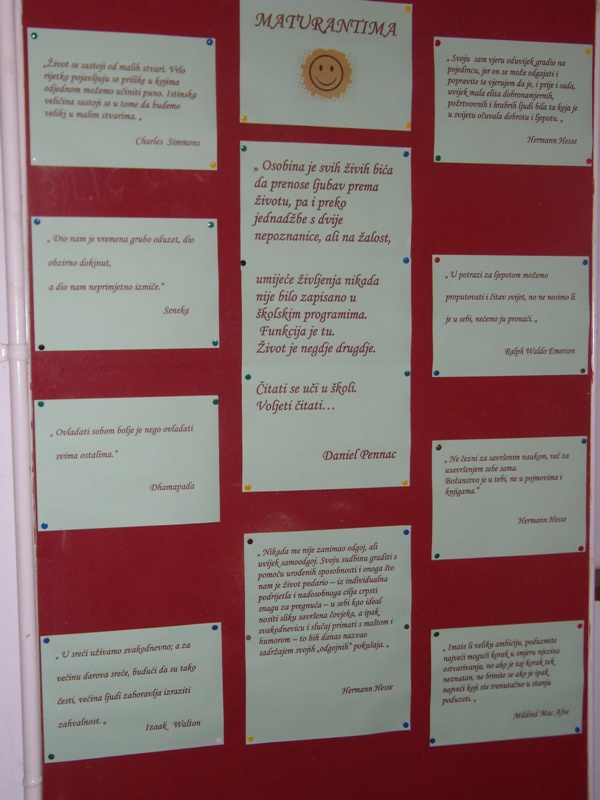 MATURANTIMA
„Život se sastoji od malih stvari. Vrlo
rijetko pojavljuju se prilike u kojima
odjednom možemo učiniti puno. Istinska
veličina sastoji se u tome da budemo
veliki u malim stvarima. „
Charles Simmons
„ Dio nam je vremena grubo oduzet, dio
obzirno dokinut,
a dio nam neprimjetno izmiče.“
Seneka
„Ovladati sobom bolje je nego ovladati
svima ostalima.“
Dhamapada
„ U sreći uživamo svakodnevno; a za
većinu darova sreće, budući da su tako
česti, većina ljudi zaboravlja izraziti
zahvalnost. „
Izaak Walton
„ Osobina je svih živih bića
da prenose ljubav prema
životu, pa i preko
jednadžbe s dvije
nepoznanice, ali na žalost,
umijeće življenja nikada
nije bilo zapisano u
školskim programima.
Funkcija je tu.
Život je negdje drugdje.
Čitati se uči u školi.
Voljeti čitati…
Daniel Pennac
„ Nikada me nije zanimao odgoj, ali
uvijek samoodgoj. Svoju sudbinu graditi s
pomoću urođenih sposobnosti i onoga što
nam je život podario – iz individualna
podrijetla i nadosobnoga cilja crpsti
snagu za pregnuća – u sebi kao ideal
nositi sliku savršena čovjeka, a ipak
svakodnevicu i slučaj primati s maštom i
humorom – to bih danas nazvao
sadržajem svojih „odgojnih" pokušaja. „
Hermann Hesse
„ Svoju sam vjeru oduvijek gradio na
pojedincu, jer on se može odgajati i
popravite te vjerujem da je, i prije i sada,
uvijek mala elita dobronamjernih,
požrtvovnih i hrabrih ljudi bila ta koja je
u svijetu očuvala dobrotu i ljepotu. „
Hermann Hesse
„ U potrazi za ljepotom možemo
proputovati i čitav svijet, no ne nosimo li
je u sebi, nećemo ju pronaći. „
Ralph Waldo Emerson
„ Ne čezni za savršenim naukom, već za
usavršenjem sebe sama.
Božanstvo je u tebi, ne u pojmovima i
knjigama.“
Hermann Hesse
„ Imate li veliku ambiciju, poduzmite
najveći mogući korak u smjeru njezina
ostvarivanja, no ako je taj korak tek
neznatan, ne brinite se ako je ipak
najveći koji ste trenutačno u stanju
poduzeti. „
Mildred Mac Afee